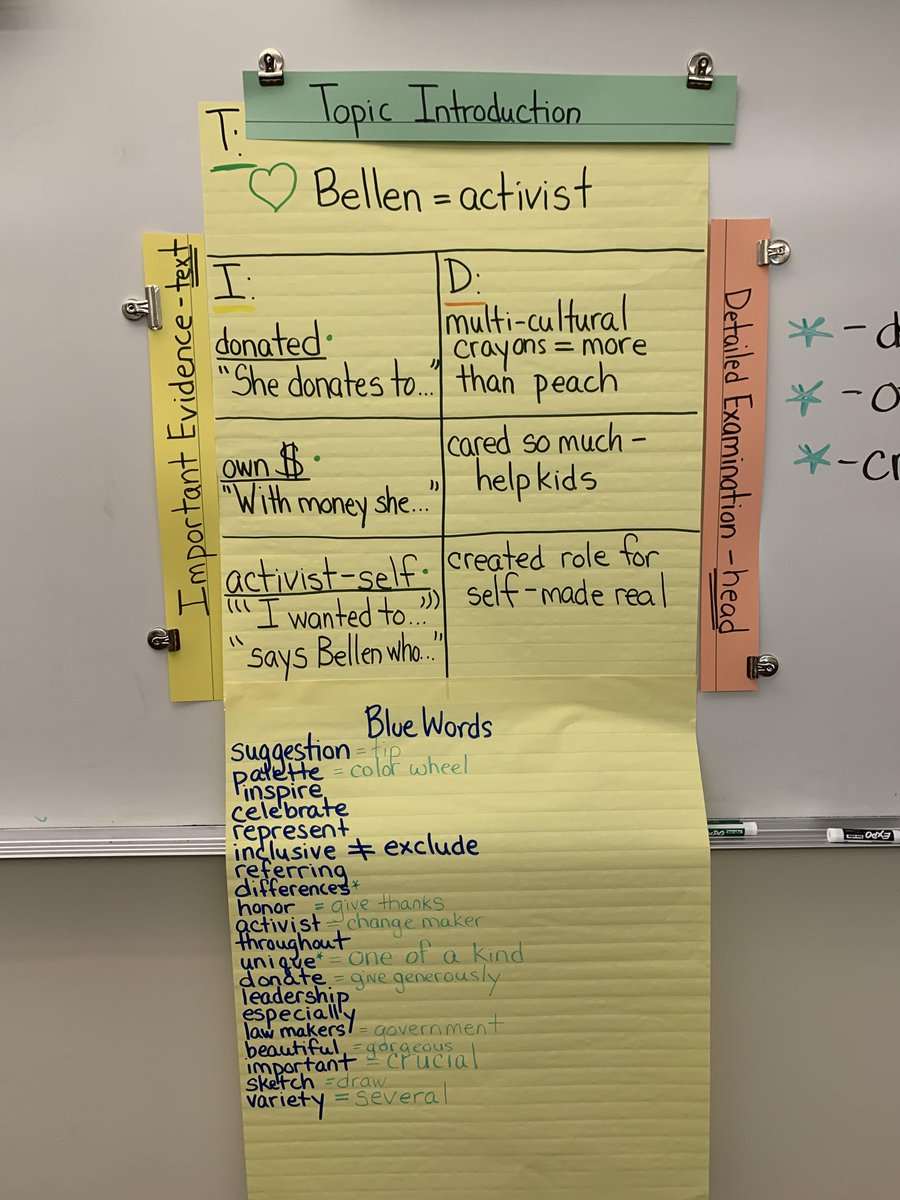 Topic Introduction
T:
♡ Bellen = activist
Important Evidence - text
I:
donated
"She donates to..."
own $
"With money she..."
activist-self
"'I wanted to...'"
"says Bellen who..."
D:
multi-cultural
crayons = more
than peach
cared so much -
help kids
created role for
self-made real
Detailed Examination - head
Blue Words
suggestion = tip
palette = color wheel
inspire
celebrate
represent
inclusive ≠ exclude
referring
differences*
honor = give thanks
activist = change maker
throughout
unique* = one of a kind
donate = give generously
leadership
especially
law makers = government
beautiful = gorgeous
important = crucial
sketch = draw
variety = several
EXPO